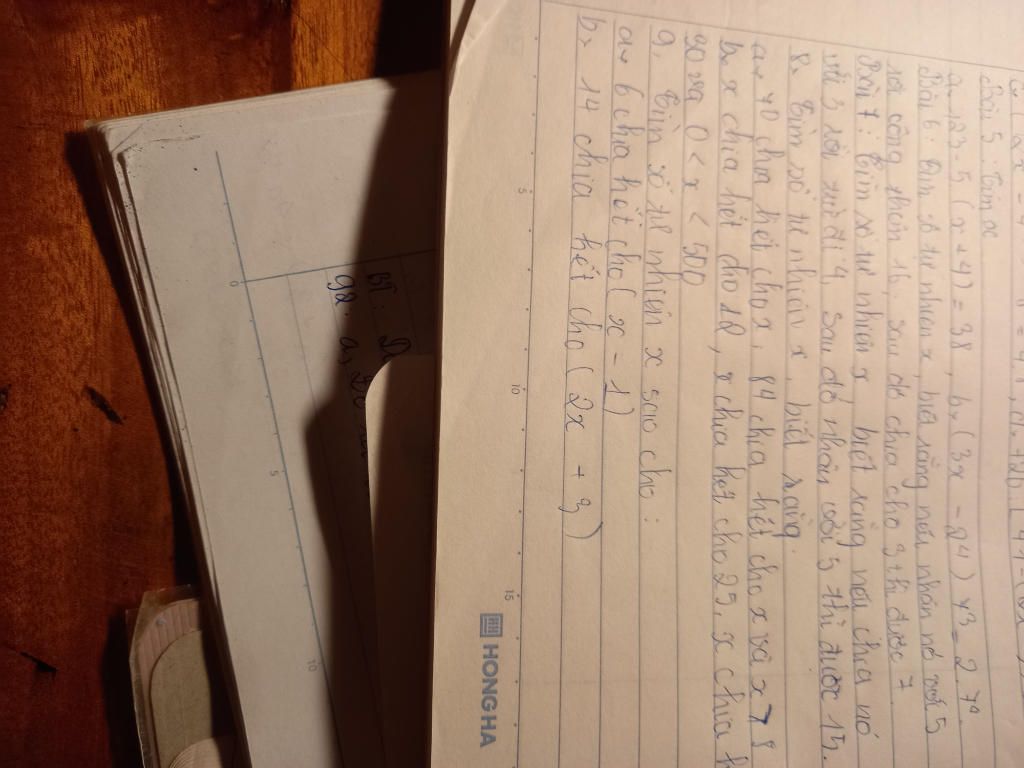 Bài 5: Tìm x
a, 123 - 5 (x + 4) = 38, b, (3x - 2⁴) 7³ = 2.7⁴
Bài 6: Tìm số tự nhiên x, biết rằng nếu nhân nó với 5
rồi cộng thêm 16, sau đó chia cho 3 thì được 7
Bài 7: Tìm số tự nhiên x biết rằng nếu chia nó
với 3 rồi trừ đi 4 sau đó nhân với 5 thì được 15.
8. Tìm số tự nhiên x, biết rằng.
a, 70 chia hết cho x, 84 chia hết cho x và x > 8
b, x chia hết cho 12, x chia hết cho 25, x chia
30 và 0 < x < 500
9, Tìm số tự nhiên x sao cho:
a, 6 chia hết cho (x - 1)
b, 14 chia hết cho (2x + 3)
5 10 15
HONGHA
BT:
98: a,
0 5 10